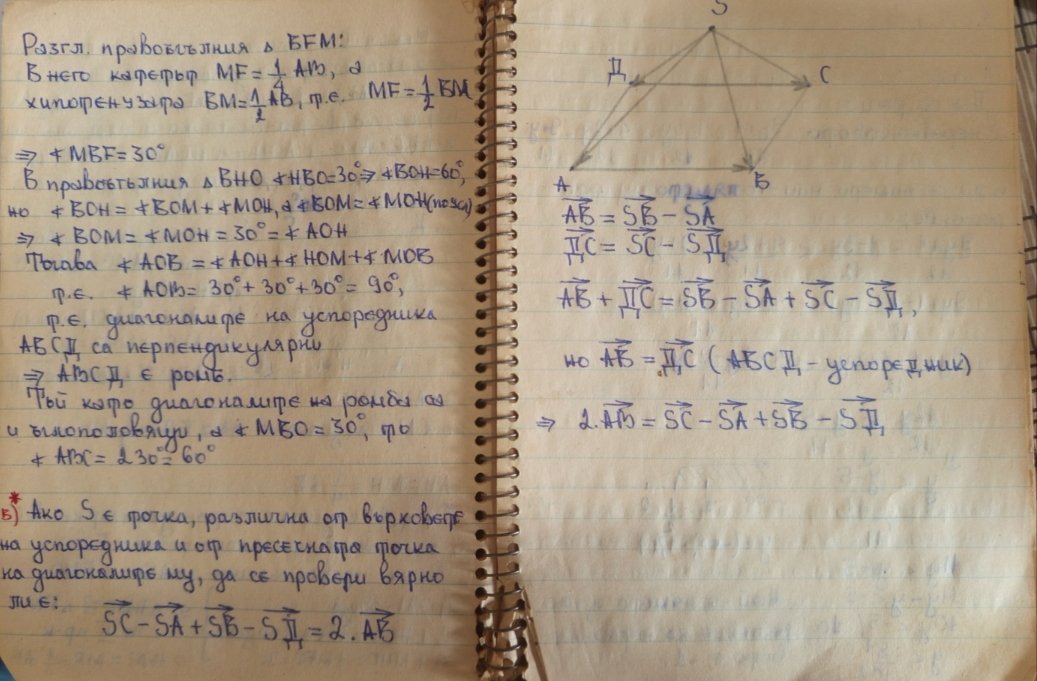 Разгл. правоъгълния △ BFM:
В него катетът MF = 1/4 AB, а
хипотенузата BM = 1/2 AB, т.е. MF = 1/2 BM
⇒ ∢MBF = 30°
В правоъгълния △ BHO ∢HBO = 30° ⇒ ∢BOH = 60°,
но ∢BOH = ∢BOM + ∢MOH, а ∢BOM = ∢MOH
⇒ ∢BOM = ∢MOH = 30° = ∢AOH
Тогава ∢AOB = ∢AOH + ∢HOM + ∢MOB
т.е. ∢AOB = 30° + 30° + 30° = 90°,
т.е. диагоналите на успоредника
ABCД са перпендикулярни
⇒ ABCД е ромб.
Тъй като диагоналите на ромба са
и ъглополовящи, а ∢MBO = 30°, то
∢ABC = 2.30° = 60°
в)* Ако S е точка, различна от върховете
на успоредника и от пресечната точка
на диагоналите му, да се провери вярно
ли е:
→SC − →SA + →SB − →SД = 2.→AB
S
Д C
A B
→AB = →SB − →SA
→ДC = →SC − →SД
→AB + →ДC = →SB − →SA + →SC − →SД,
но →AB = →ДC (ABCД – успоредник)
⇒ 2.→AB = →SC − →SA + →SB − →SД